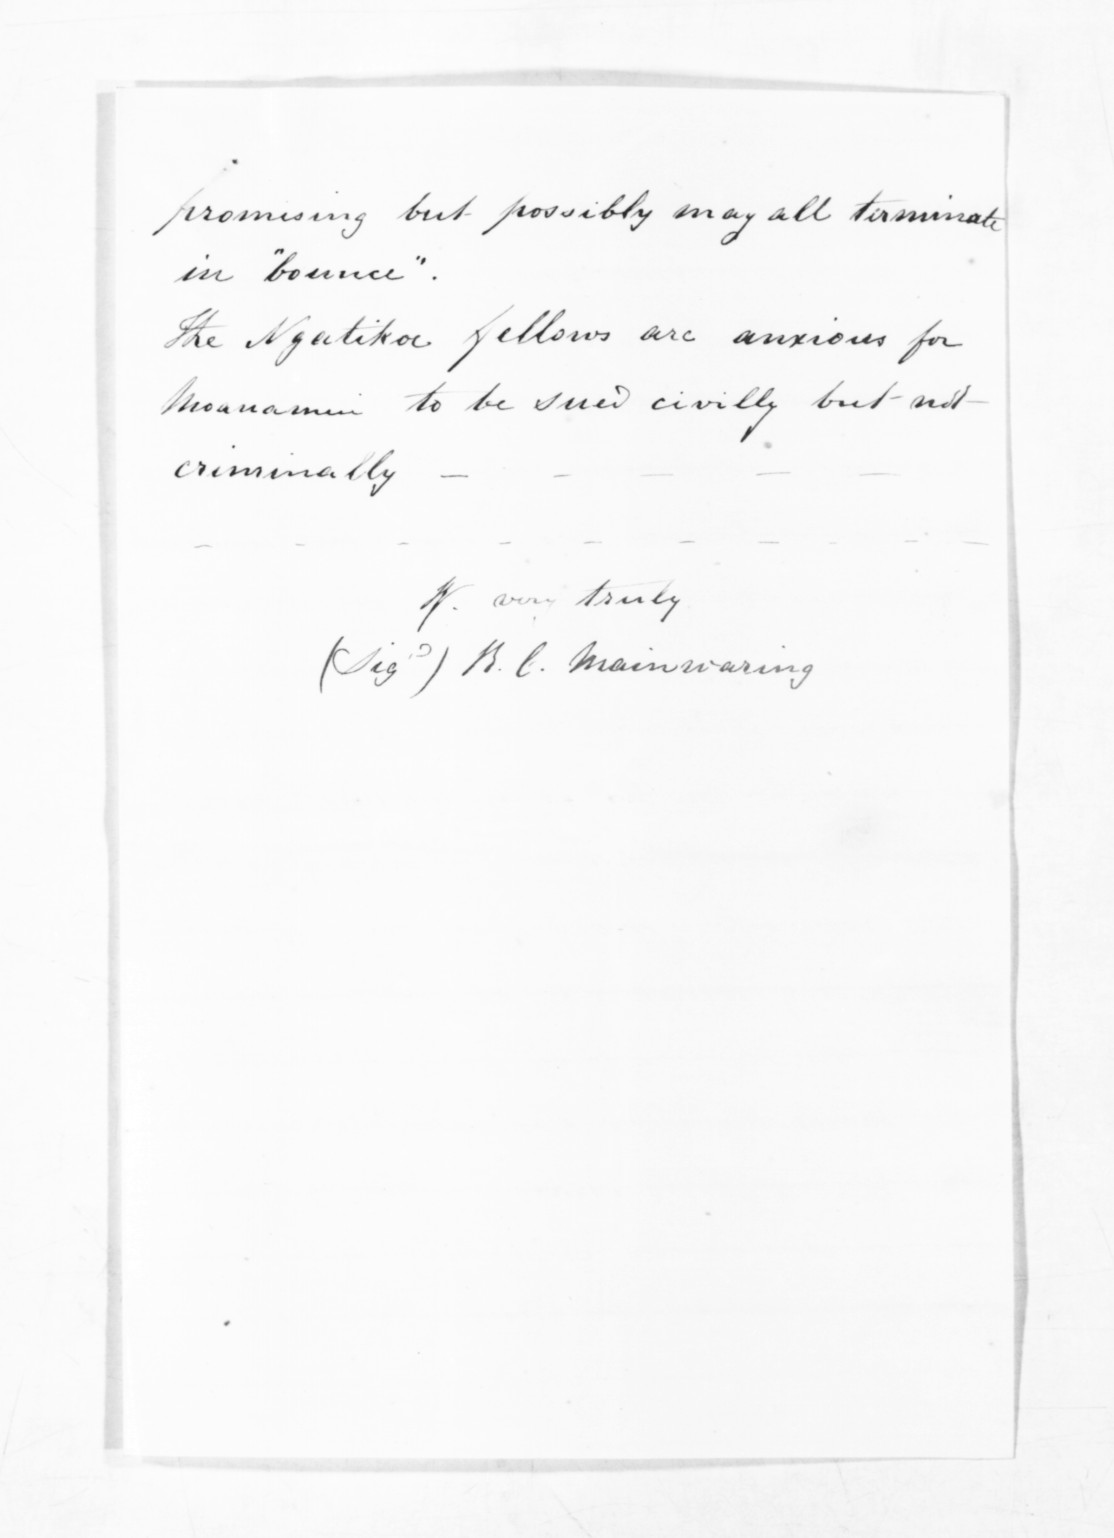 promising but possibly may all terminate
in "bounce".
The Ngatikoe fellows are anxious for
Moanamui to be sued civilly but not
criminally — — — — —
— — — — — — — — —
Y. very truly
(Sigd) R. C. Mainwaring